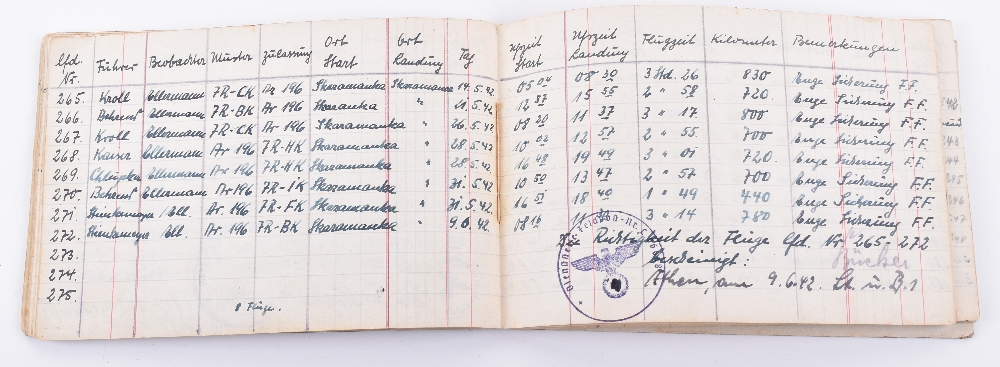 Lfd. Nr. Führer Beobachter Muster Zulassung Ort Start Ort Landung Tag Uhrzeit Start Uhrzeit Landung Flugzeit Kilometer Bemerkungen
265. Kroll Ellermann 7R-CK Ar 196 Skaramanka Skaramanka 14.5.42 05 04 08 30 3 Std. 26 830 Enge Sicherung F.F.
266. Behrend Ellermann 7R-BK Ar 196 Skaramanka " 21.5.42 12 57 15 55 2 " 58 720 Enge Sicherung F.F.
267. Kroll Ellermann 7R-CK Ar 196 Skaramanka " 26.5.42 08 20 11 37 3 " 17 800 Enge Sicherung F.F.
268. Kaiser Ellermann Ar 196 7R-HK Skaramanka " 28.5.42 10 02 12 57 2 " 55 700 Enge Sicherung F.F.
269. Ellermann Ar 196 7R-HK Skaramanka " 28.5.42 16 48 19 49 3 " 01 720. Enge Sicherung F.F.
270. Behrend Ellermann Ar 196 7R-JK Skaramanka " 31.5.42 10 50 13 47 2 " 57 700 Enge Sicherung F.F.
271. / Ell. Ar. 196 7R-FK Skaramanka " 31.5.42. 16 51 18 40 1 " 49 440 Enge Sicherung F.F.
272. Ell. Ar. 196 7R-BK Skaramanka " 9.6.42. 08 16 11 3 " 14 780 Enge Sicherung F.F.
273.
274.
275.
8 Flüge.
Die Richtigkeit der Flüge lfd. Nr. 265-272
bescheinigt:
Athen, am 9.6.42. Lt. u. B.1